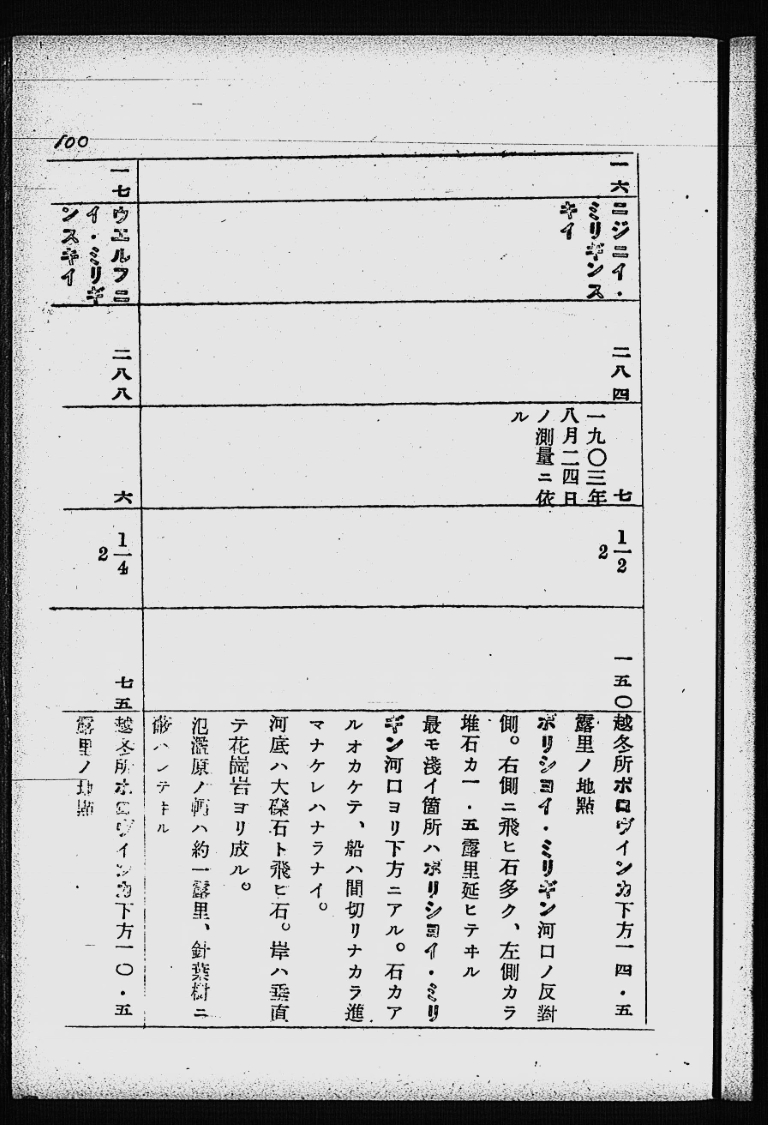 100
一六
ニジニイ・
ミリギンス
キイ
二八四
七
一九〇三年
八月二四日
ノ測量ニ依
ル
2 1/2
一五〇
越冬所ポロヴインカ下方一四・五
露里ノ地點
ボリシヨイ・ミリギン河口ノ反對
側。右側ニ飛ヒ石多ク、左側カラ
堆石カ一・五露里延ヒテヰル
最モ淺イ箇所ハボリシヨイ・ミリ
ギン河口ヨリ下方ニアル。石カア
ルオカケテ、船ハ間切リナカラ進
マナケレハナラナイ。
河底ハ大礫石ト飛ヒ石。岸ハ垂直
テ花崗岩ヨリ成ル。
氾濫原ノ幅ハ約一露里、針葉樹ニ
蔽ハレテヰル
一七
ウエルフニ
イ・ミリギ
ンスキイ
二八八
六
2 1/4
七五
越冬所ポロヴインカ下方一〇・五
露里ノ地點